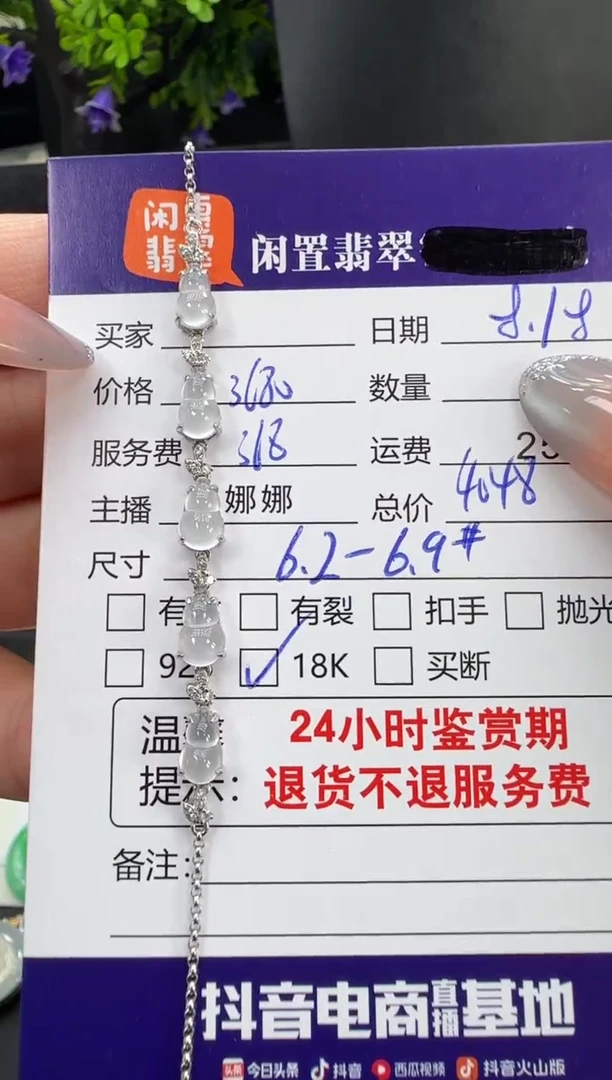 闲
翡
闲置翡翠
买家 日期 8.18
价格 3680 数量
服务费 318 运费 25
主播 娜娜 总价 4048
尺寸 6.2-6.9#
有 有裂 扣手 抛光
92 18K 买断
温 24小时鉴赏期
提示: 退货不退服务费
备注:
抖音电商直播基地
头条 今日头条 抖音 西瓜视频 抖音火山版